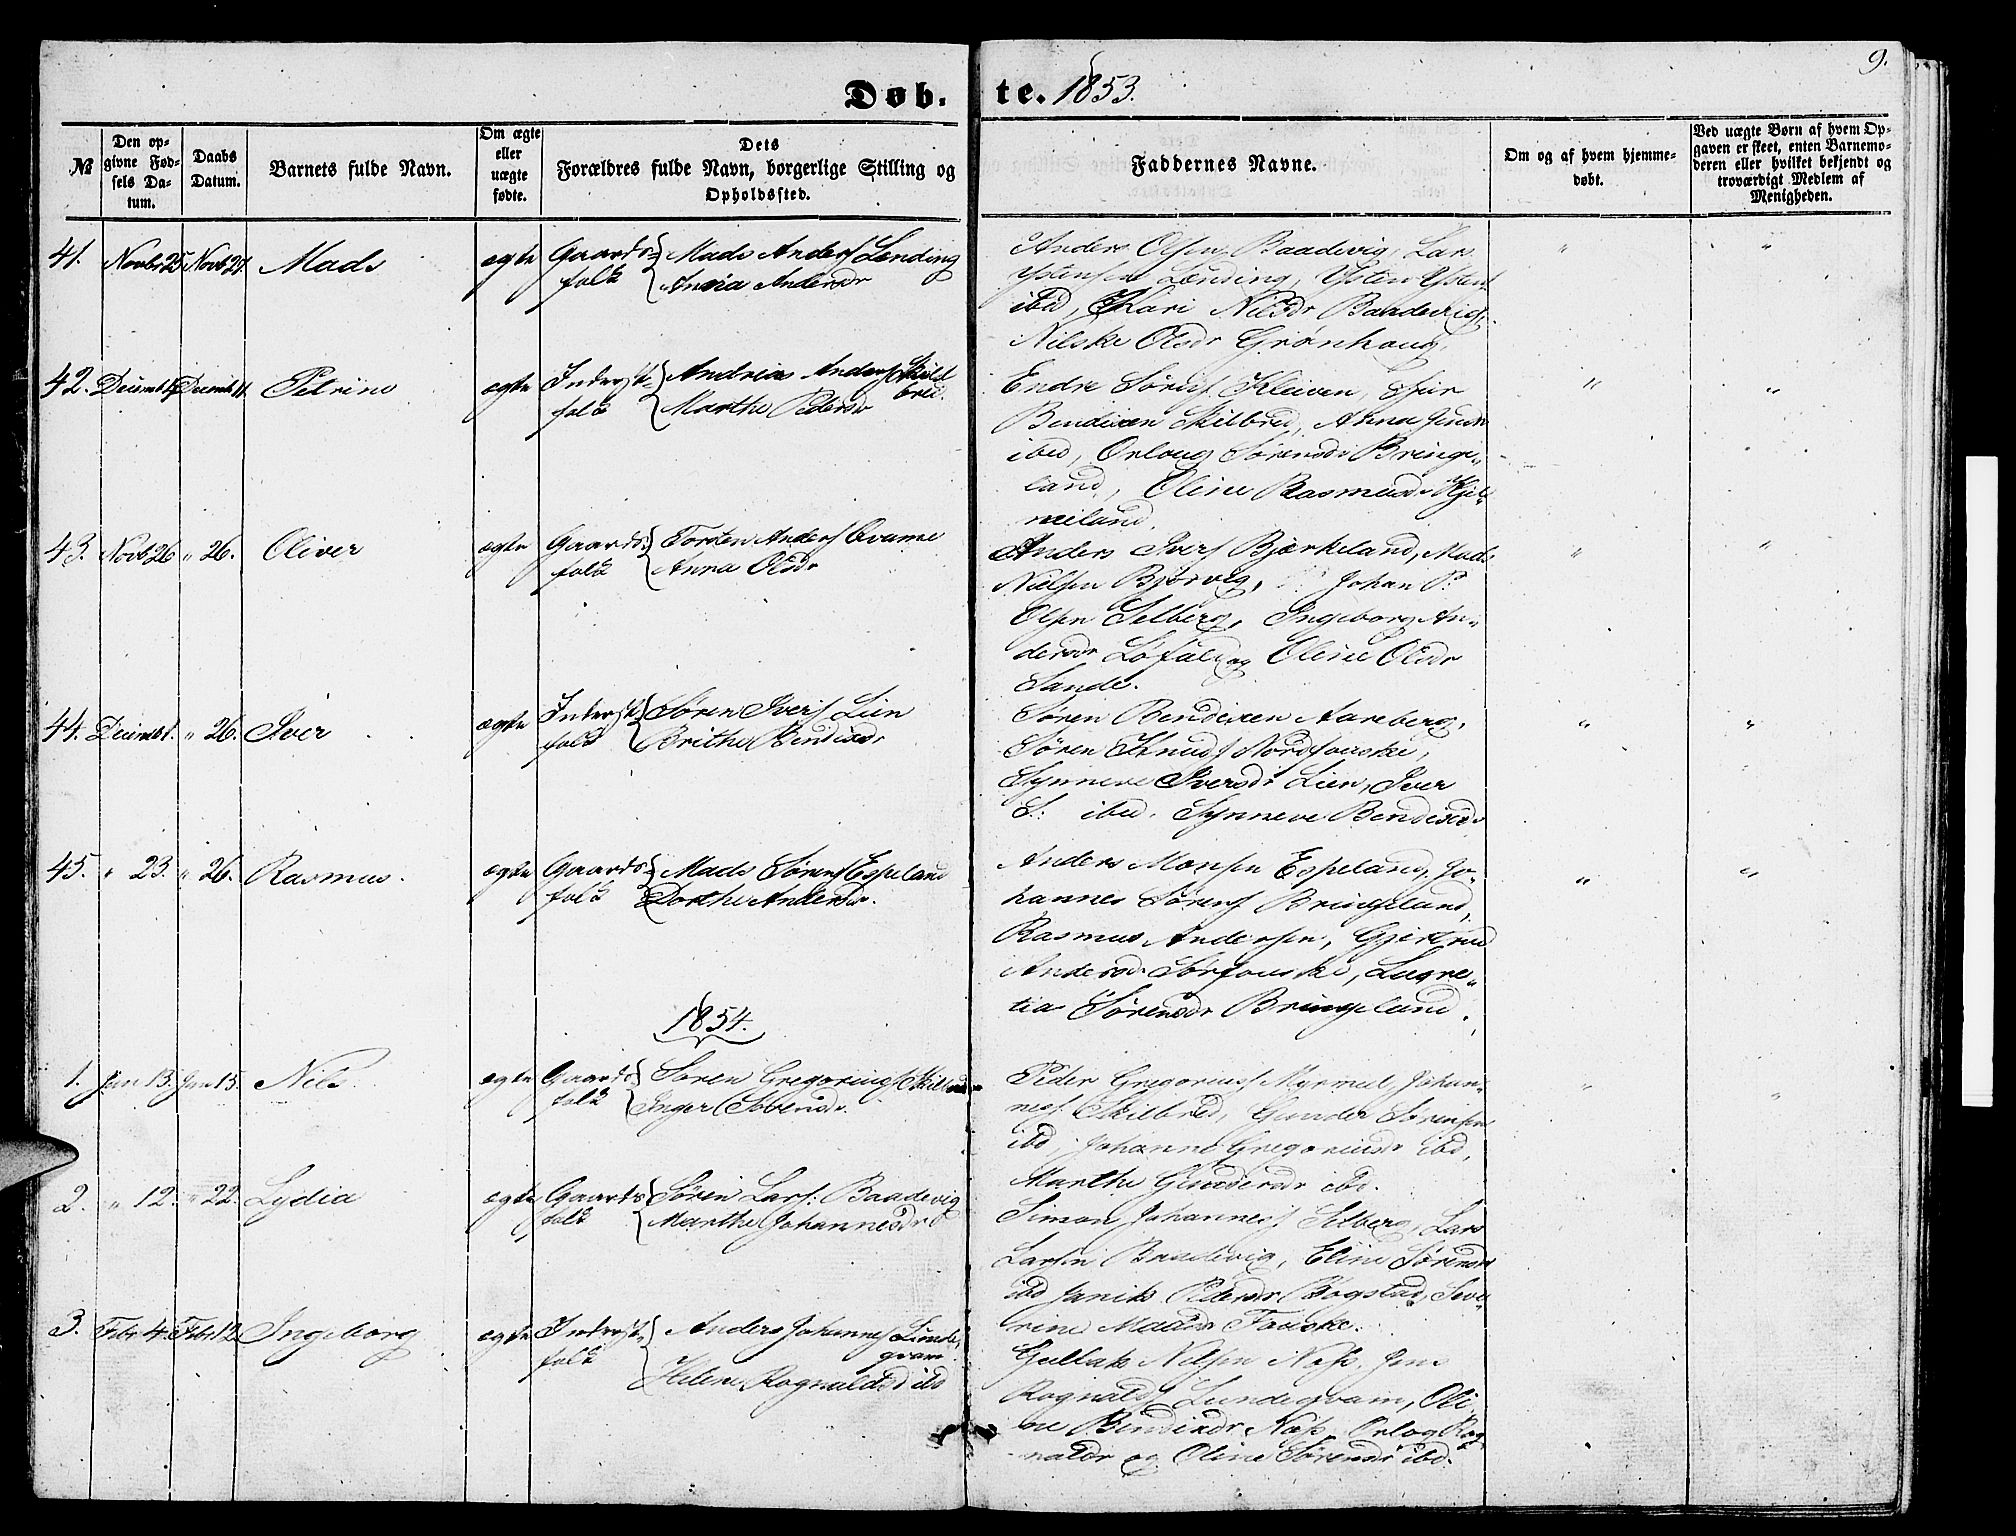 9.
Døb. te. 1853.
№
Den opgivne Fødsels Datum.
Daabs Datum.
Barnets fulde Navn.
Om ægte eller uægte fødte.
Dets Forældres fulde Navn, borgerlige Stilling og Opholdssted.
Faddernes Navne.
Om og af hvem hjemmedøbt.
Ved uægte Børn af hvem Opgaven er skeet, enten Barnemoderen eller hvilket bekjendt og troværdigt Medlem af Menigheden.
41. Novbr 25 Novb 27 Mads ægte Gaardsfolk Mads Anders Lending
Anna Andersdr
Anders Olsen Baadevig, Lars
Ystensen Lending, Ysten Ystens
ibid, Kari Nilsdr Baadevig,
Nilske Olsdr Grønhaug
42. Decemb Decemb 11. Petrine ægte Inderstfolk Andreas Anders Skilbrei.
Marthe Pedersdr
Endre Sørens Kleiven, Siur
Bendixen Skilbred, Anna Jensdr
ibid, Orloug Sørensdr Bringeland,
Oline Rasmusdr Hjelmeland.
43. Novb 26 " 26. Oliver ægte Gaardsfolk Torsten Anders Qvame
Anna Olsdr
Anders Ivers Bjerkeland, Mads
Nielsen Bjørvig, Johan P.
Olsen Selberg, Ingeborg Andersdr
Løfald og Oline Olsdr
Sande.
44. Decemb 1. " 26. Iver ægte Inderstfolk Søren Ivers Lien
Brithe Bendixdr
Søren Bendixen Aareberg,
Søren Knuds Nordfouske,
Synneve Iversdr Lien, Iver
S: ibid. Synneve Bendixdr
45. " 23. " 26. Rasmus. ægte Gaardsfolk Mads Sørens Espeland
Dorthe Andersdr.
Anders Monsen Espeland, Johannes
Sørens Bringeland,
Rasmus Andersen, Gjertrud
Andersdr Sørfouske, Lugretia
Sørensdr Bringeland.
1854.
1. Jan 13. Jan 15. Nils. ægte Gaardsfolk Søren Gregorius Skilbred
Inger Sørensdr.
Peder Gregorius Myrmel, Johannes
Skilbred, Gunder Sørensen
ibd, Johanne Gregoriusdr ibd,
Marthe Gundersdr ibd.
2. " 12. " 22. Lydia ægte Gaardsfolk Søren Lars: Baadevig
Marthe Johannesdr
Simon Johannes Selberg, Lars
Larsen Baadevig, Eline Sørensdr
ibd Janike Pedersdr Bogstad, Severine
Madsdr Fauske.
3. Febr 4. Febr 12 Ingeborg ægte Inderstfolk Anders Johannes Lundeqvam
Helene Rognaldsd ibd
Gullak Nilsen Næss, Jens
Rognalds Lundeqvam, Oline
Bendixdr Næss, Orlog Rognaldr
og Oline Sørensdr ibd.